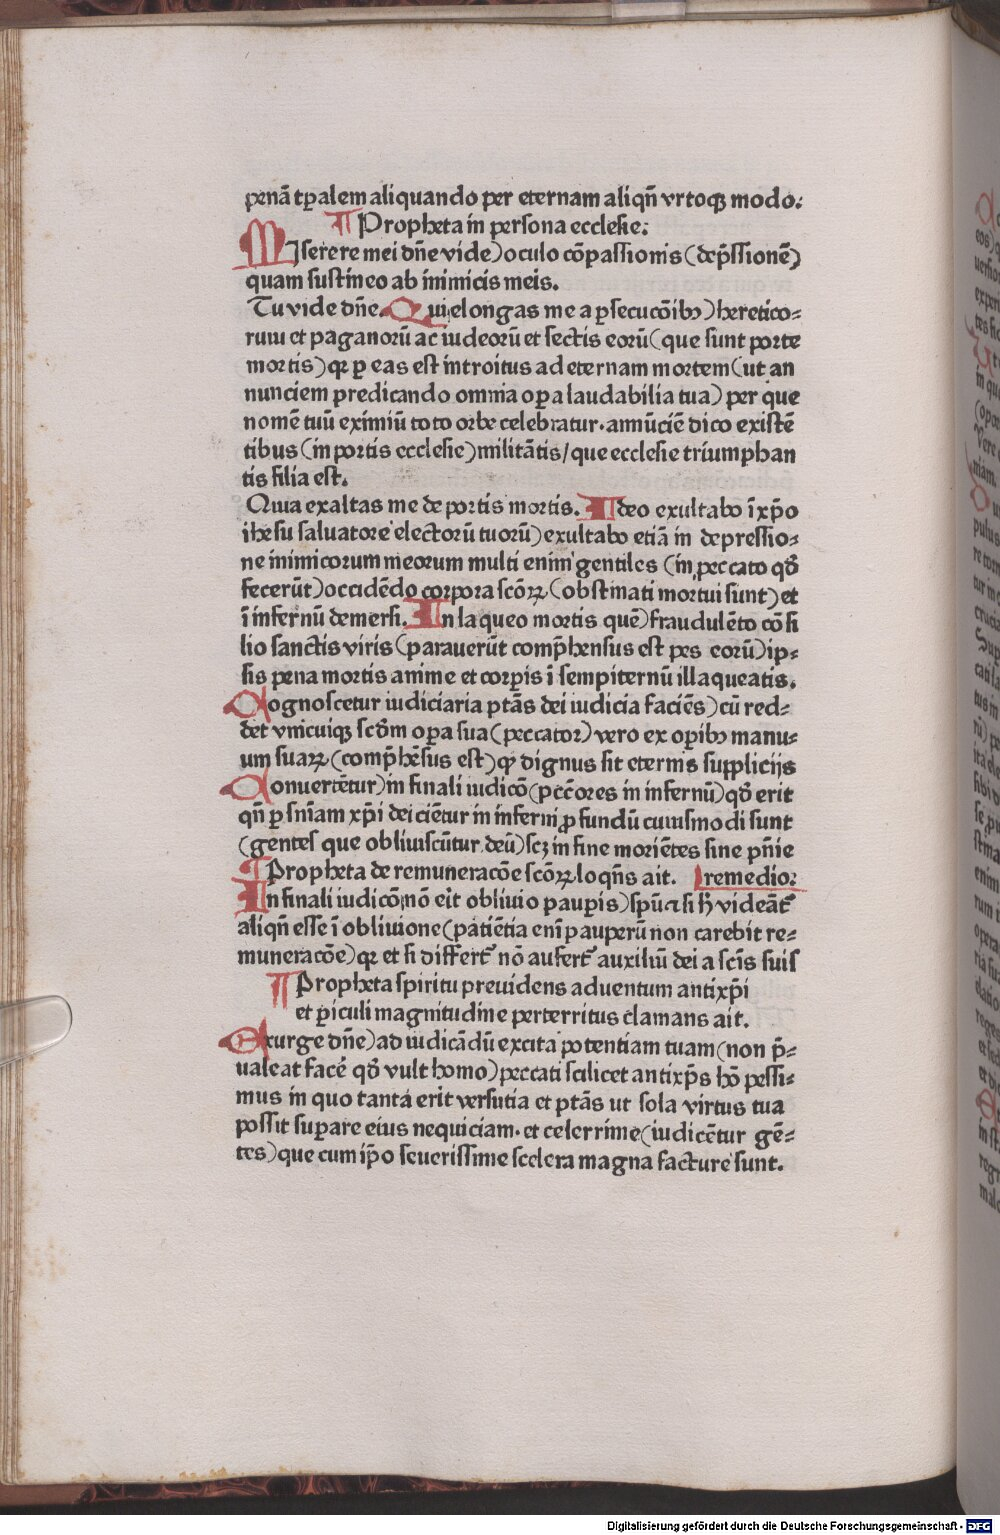 penā tꝑalem aliquando per eternam aliqñ vrtoqꝫ modo:
¶ Propheta in persona ecclesie:
MIserere mei dñe vide) oculo cōpassionis (dep̄ssionē)
quam sustineo ab inimicis meis.
Tu vide dñe. Qui elongas me a ꝑsecucōibꝫ) heretico-
rum et paganorū ac iudeorū et sectis eorū (que sunt porte
mortis) qꝛ ꝑ eas est introitus ad eternam mortem (ut an
nunciem predicando omnia oꝑa laudabilia tua) per que
nomē tuū eximiū toto orbe celebratur. annūciē dico existē
tibus (in portis ecclesie) militātis / que ecclesie triumphan
tis filia est.
Quia exaltas me de portis mortis. Ideo exultabo ī xp̄o
ihesu saluatore electorū tuorū) exultabo etiā in depressio-
ne inimicorum meorum multi enim gentiles (in peccato qd̄
fecerūt) occidēdo corpora scōꝝ (obstinati mortui sunt) et
ī infernū demersi. In laqueo mortis quē) fraudulēto cōsi
lio sanctis viris (parauerūt comp̄hensus est pes eorū) ip-
sis pena mortis anime et corꝑis ī sempiternū illaqueatis.
Cognoscetur iudiciaria ptās dei iudicia faciēs) cū red-
det vnicuiqꝫ scd̄m oꝑa sua (peccator) vero ex oꝑibꝫ manu-
um suaꝝ (comp̄hēsus est) qꝛ dignus sit eternis suppliciis
Conuertētur) in finali iudicō (pctōres in infernū) qd̄ erit
qñ ꝑ sniam xp̄i dei ciētur in inferni ꝓfundū cuiusmodi sunt
(gentes que obliuiscūtur deū) scꝫ in fine moriētes sine pñie
¶ Propheta de remuneracōe scōꝝ loqñs ait. remedio:
In finali iudicō nō eīt obliuio pauꝑis) spūa si hͦ videāt̄
aliqñ esse ī obliuione (patiētia enī pauperū non carebit re-
muneracōe) qꝛ et si differt̄ nō aufert̄ auxiliū dei a scīs suis
¶ Propheta spiritu preuidens aduentum antixp̄i
et ꝑiculi magnitudine perterritus clamans ait.
Exurge dñe) ad iudicādū excita potentiam tuam (non p̄-
ualeat facē qd̄ vult homo) peccati scilicet antixp̄s hō pessi-
mus in quo tanta erit versutia et ptās ut sola virtus tua
possit suꝑare eius nequiciam. et celerrime (iudicētur gē-
tes) que cum ip̄o seuerissime scelera magna facture sunt.
Digitalisierung gefördert durch die Deutsche Forschungsgemeinschaft - DFG